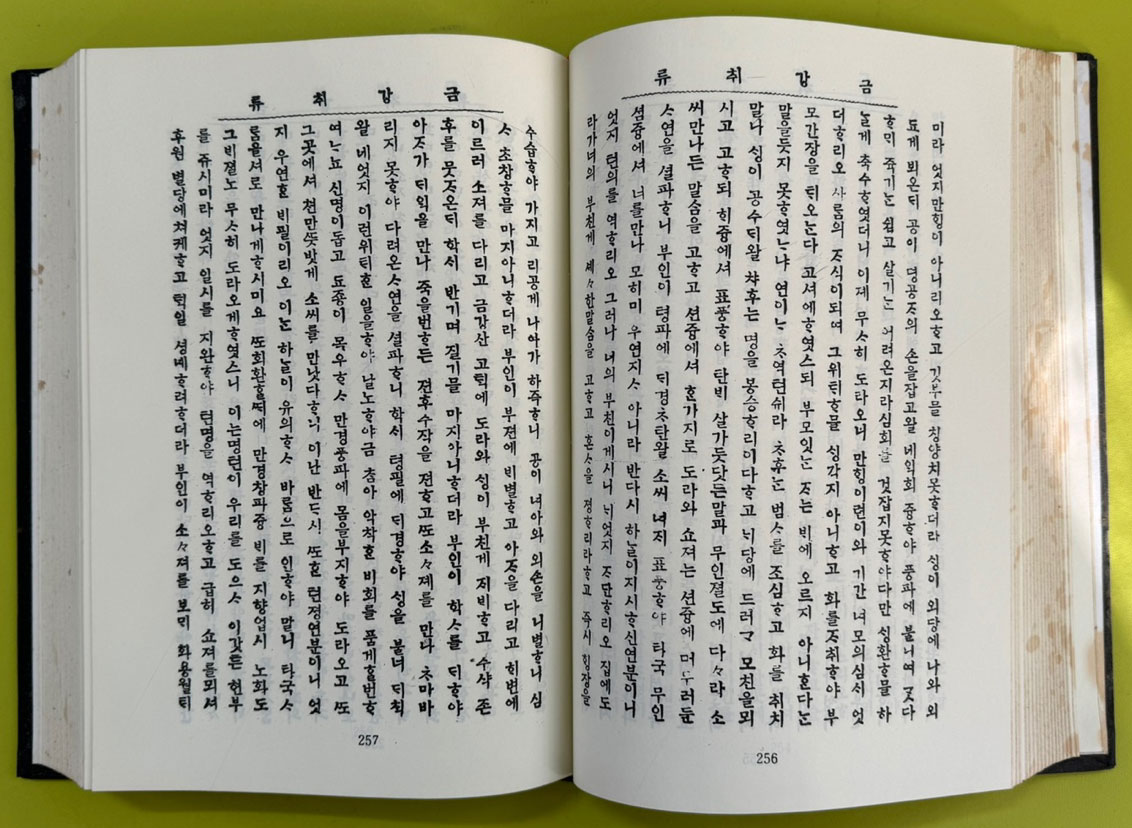 금강취류
미라 엇지만ᄒᆡᆼ이 아니리오ᄒᆞ고 깃부믈 칭양치못ᄒᆞ더라 싱이 외당에 나와 외
됴게 뵈온ᄃᆡ 공이 명공ᄌᆞ의 손을잡고왈 네익회 즁ᄒᆞ야 풍파에 불니여 ᄀᆞᆺ다
ᄒᆞᄆᆡ 쥭기ᄂᆞᆫ 쉽고 살기ᄂᆞᆫ 어려온지라심회를 것잡지못ᄒᆞ야다만 싱환ᄒᆞ믈 하
ᄂᆞᆯ게 축수ᄒᆞ엿더니 이제 무ᄉᆞ히 도라오니 만ᄒᆡᆼ이련이와 기간 너모의심ᄉᆡ 엇
더ᄒᆞ리오 사ᄅᆞᆷ의 ᄌᆞ식이되여 그위ᄐᆡᄒᆞ믈 싱각지 아니ᄒᆞ고 화를ᄌᆞ취ᄒᆞ야 부
모간장을 ᄐᆡ오ᄂᆞᆫ다 고셔에ᄒᆞ엿스되 부모잇ᄂᆞᆫ ᄌᆞᄂᆞᆫ ᄇᆡ에 오르지 아니ᄒᆞᆫ다ᄂᆞᆫ
말을듯지 못ᄒᆞ엿ᄂᆞ냐 연이ᄂᆞᆫ ᄎᆞ역텬슈라 ᄎᆞ후ᄂᆞᆫ 범ᄉᆞ를 조심ᄒᆞ고 화를 취치
말나 싱이 공수ᄃᆡ왈 ᄎᆞ후는 명을 봉승ᄒᆞ리이다ᄒᆞ고 ᄂᆡ당에 드러ᄀᆞ 모친을뫼
시고 고ᄒᆞ되 ᄒᆡ즁에셔 표풍ᄒᆞ야 탄ᄇᆡ 살가듯닷든말과 무인졀도에 다ᄃᆞ라 소
씨만나든 말ᄉᆞᆷ을 고ᄒᆞ고 션즁에셔 ᄒᆞᆫ가지로 도라와 쇼져는 션즁에 머무러둔
ᄉᆞ연을 셜파ᄒᆞ니 부인이 텽파에 ᄃᆡ경ᄎᆞ탄왈 소씨 녀ᄌᆡ 표풍ᄒᆞ야 타국 무인
셤즁에셔 너를만나 모히미 우연지ᄉᆞ 아니라 반다시 하ᄂᆞᆯ이지시ᄒᆞ신연분이니
엇지 텬의를 역ᄒᆞ리오 그러나 너의 부친이게시니 ᄂᆡ엇지 ᄌᆞ단ᄒᆞ리오 집에도
라가너의 부친게 셰셰ᄒᆞᆫ말ᄉᆞᆷ을 고ᄒᆞ고 혼ᄉᆞ을 졍ᄒᆞ리라ᄒᆞ고 즉시 ᄒᆡᆼ장을
256
금강취류
수습ᄒᆞ야 가지고 리공게 나아가 하즉ᄒᆞ니 공이 녀아와 외손을 니별ᄒᆞ니 심
ᄉᆞ 초창ᄒᆞ믈 마지아니ᄒᆞ더라 부인이 부젼에 ᄇᆡ별ᄒᆞ고 아ᄌᆞ을 다리고 ᄒᆡ변에
이르러 소져를 다리고 금강산 고ᄐᆡᆨ에 도라와 싱이 부친게 ᄌᆡᄇᆡᄒᆞ고 수샤 존
후를 뭇ᄌᆞ온ᄃᆡ 학ᄉᆡ 반기며 질기믈 마지아니ᄒᆞ더라 부인이 학ᄉᆞ를 ᄃᆡᄒᆞ야
아ᄌᆞ가 ᄃᆡ익을 만나 죽을번ᄒᆞ든 젼후수작을 젼ᄒᆞ고ᄯᅩ소ᄉᆞ졔를 만나 ᄎᆞ마바
리지 못ᄒᆞ야 다려온ᄉᆞ연을 셜파ᄒᆞ니 학ᄉᆡ 텽필에 ᄃᆡ경ᄒᆞ야 싱을 불너 ᄃᆡ칙
왈 네엇지 이런위ᄐᆡᄒᆞᆫ 일을ᄒᆞ야 날노ᄒᆞ야금 참아 악착ᄒᆞᆫ 비회를 품게ᄒᆞᆯ번ᄒᆞ
여ᄂᆞ뇨 신명이돕고 됴종이 목우ᄒᆞᄉᆞ 만경풍파에 몸을부지ᄒᆞ야 도라오고 ᄯᅩ
그곳에셔 쳔만ᄯᅳᆺ밧게 소씨를 만낫다ᄒᆞ니 이난 반드시 ᄯᅩᄒᆞᆫ 텬졍연분이니 엇
지 우연ᄒᆞᆫ ᄇᆡ필이리오 이ᄂᆞᆫ 하ᄂᆞᆯ이 유의ᄒᆞᄉᆞ 바ᄅᆞᆷ으로 인ᄒᆞ야 말니 타국ᄉᆞ
ᄅᆞᆷ을셔로 만나게ᄒᆞ시미요 ᄯᅩ회환ᄒᆞᆯᄯᆡ에 만경창파즁 ᄇᆡ를 지향업시 노화도
그ᄇᆡ졀노 무ᄉᆞ히 도라오게ᄒᆞ엿스니 이는명텬이 우리를 도으ᄉᆞ 이갓튼 현부
를 쥬시미라 엇지 일시를 지완ᄒᆞ야 텬명을 역ᄒᆞ리오ᄒᆞ고 급히 쇼져를뫼셔
후원 별당에쳐케ᄒᆞ고 ᄐᆡᆨ일 셩녜ᄒᆞ려ᄒᆞ더라 부인이 소ᄉᆞ져를 보ᄆᆡ 화용월ᄐᆡ
257